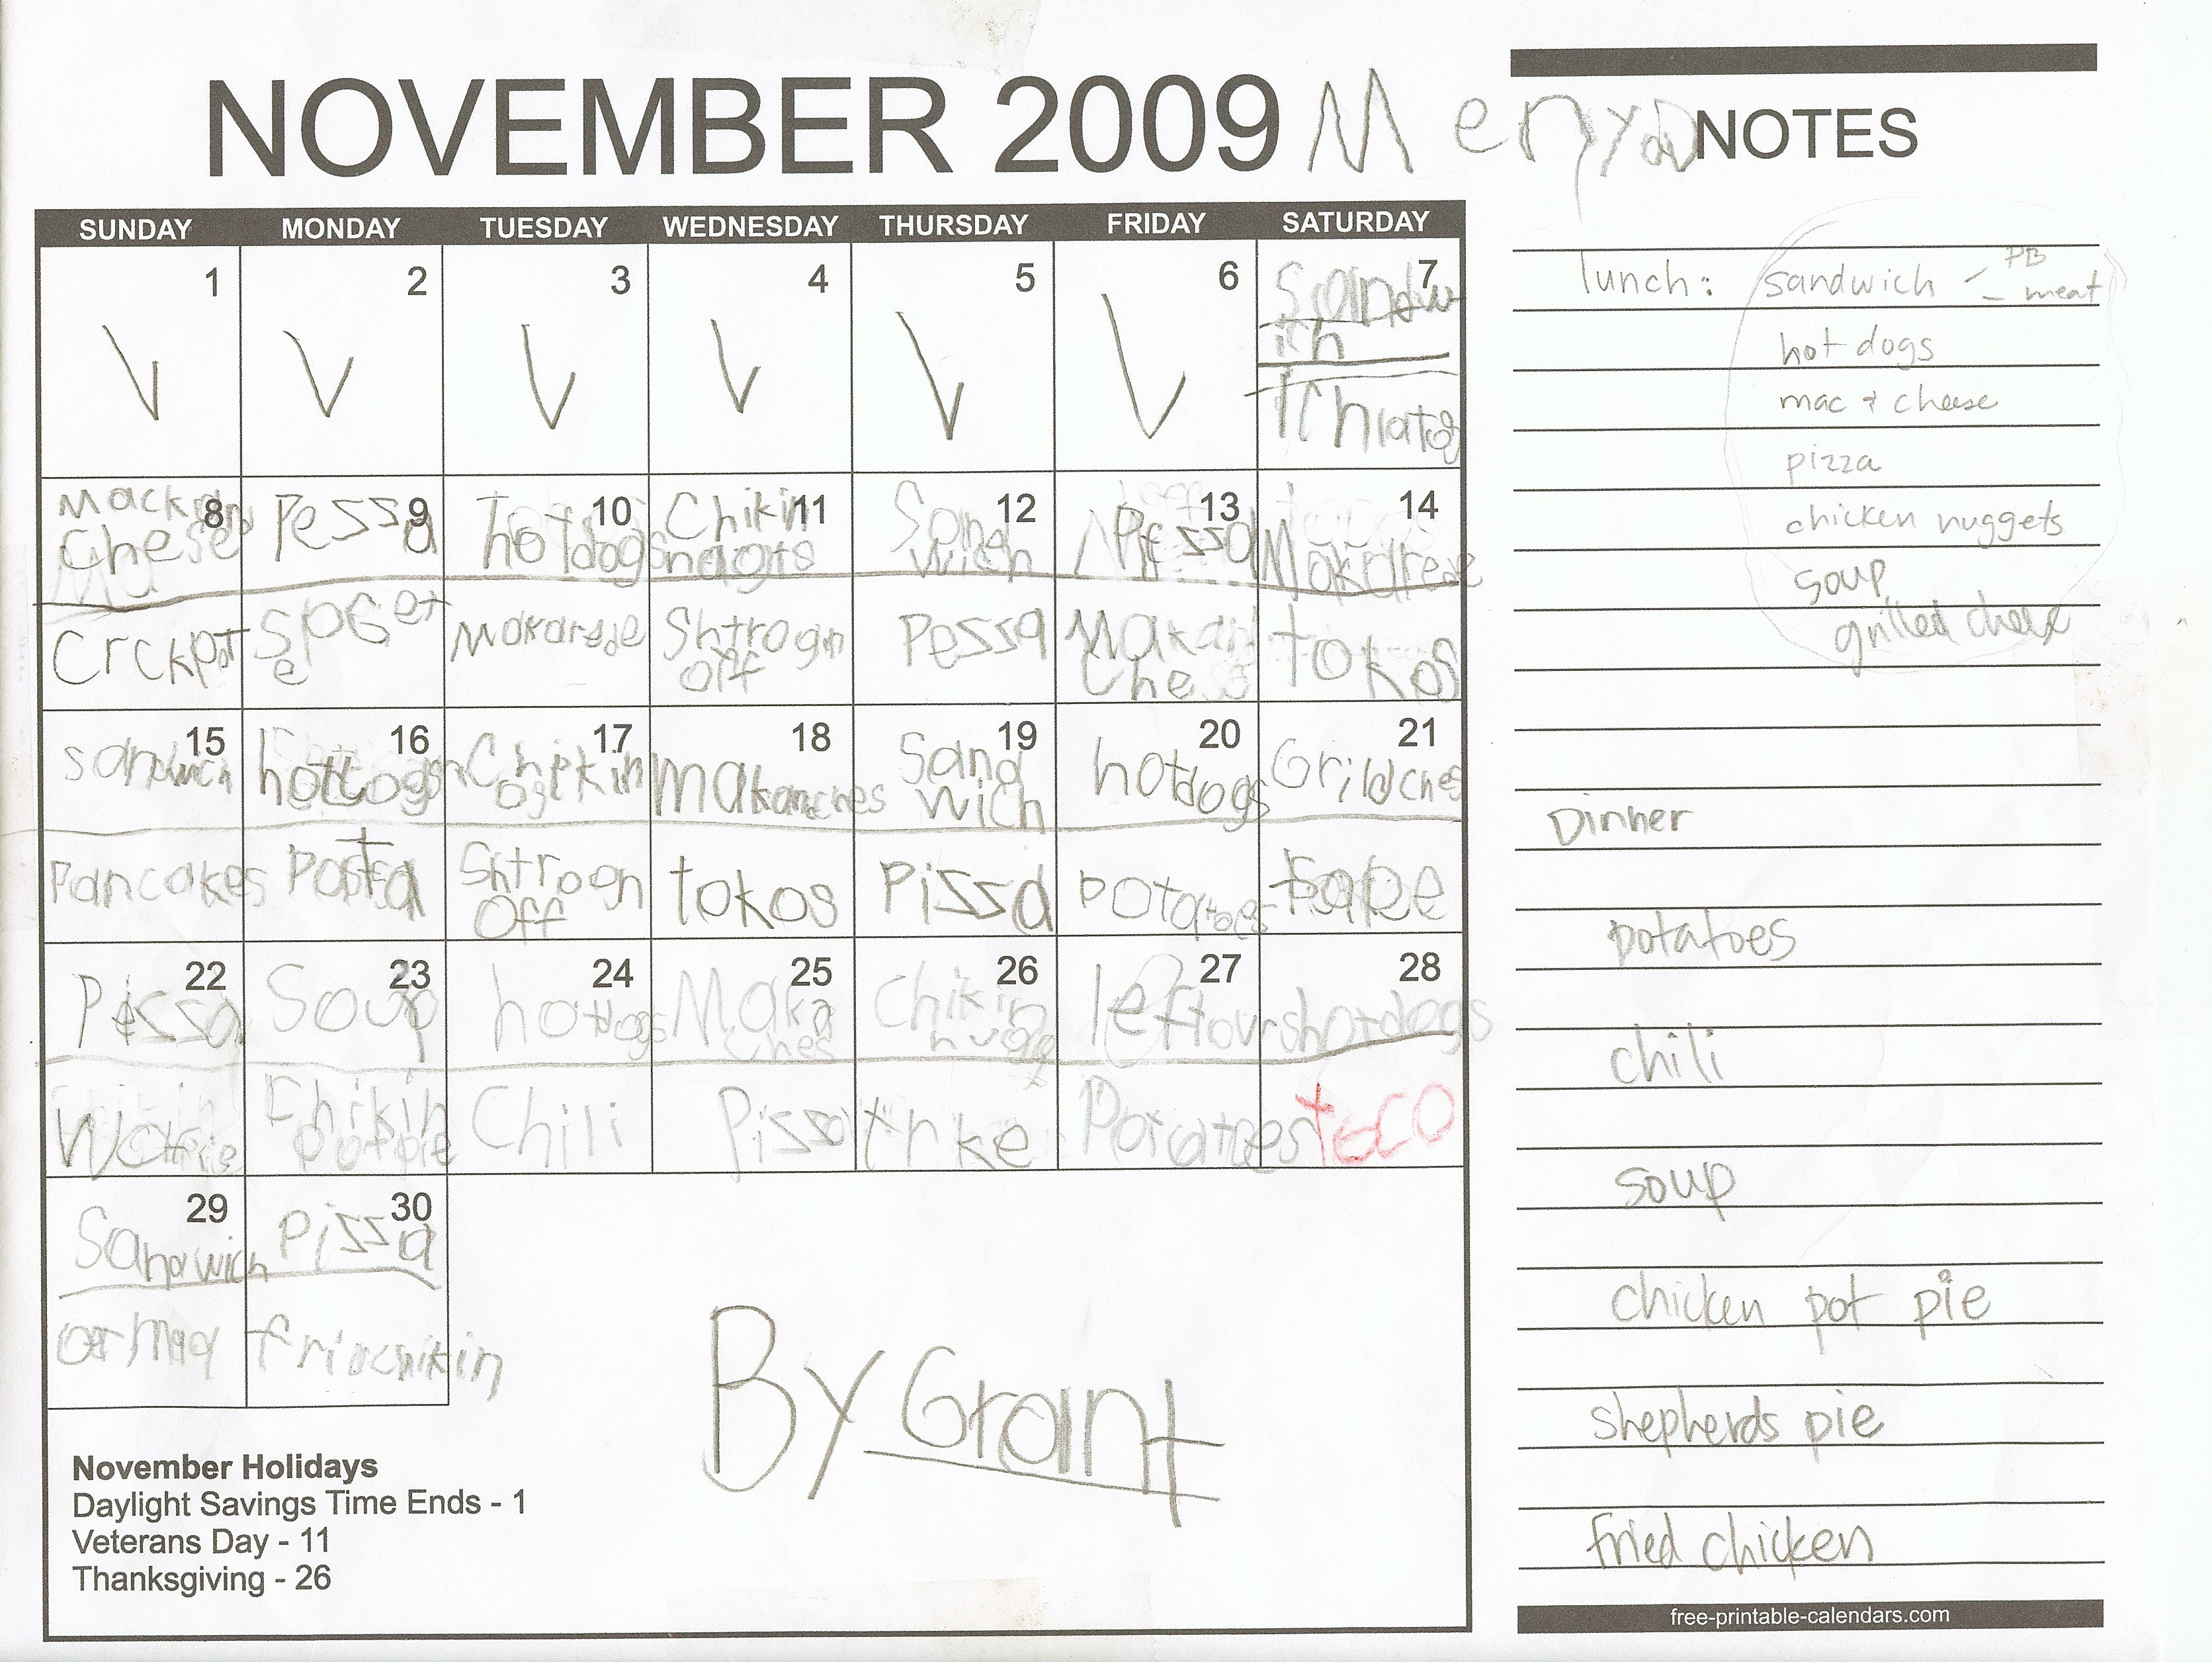 NOVEMBER 2009 Menyoo NOTES
SUNDAY MONDAY TUESDAY WEDNESDAY THURSDAY FRIDAY SATURDAY
1 2 3 4 5 6 7
Sandw
ich
8 9 10 11 12 13 14
Chese Pessa hotdogs Chikin nagits Sand wich Pessa
Crckpot SpGet e Shtrogn Off Pessa tokos
15 16 17 18 19 20 21
sandwich hotdogs Chikin Sand wich hotdogs Grildches
Pancakes Posta Shtrogn Off tokos Pizza potatoes
22 23 24 25 26 27 28
Pessa Soup hotdogs Maka ches Chikin nugg leftovrs hotdogs
Chikin potpie Chili Pizza trke Potatoes teco
29 30
Sandwich Pizza
friochikin
By Grant
November Holidays
Daylight Savings Time Ends - 1
Veterans Day - 11
Thanksgiving - 26
lunch: sandwich - PB
- meat
hot dogs
mac + cheese
pizza
chicken nuggets
soup
grilled cheese
Dinner
potatoes
chili
soup
chicken pot pie
shepherds pie
fried chicken
free-printable-calendars.com